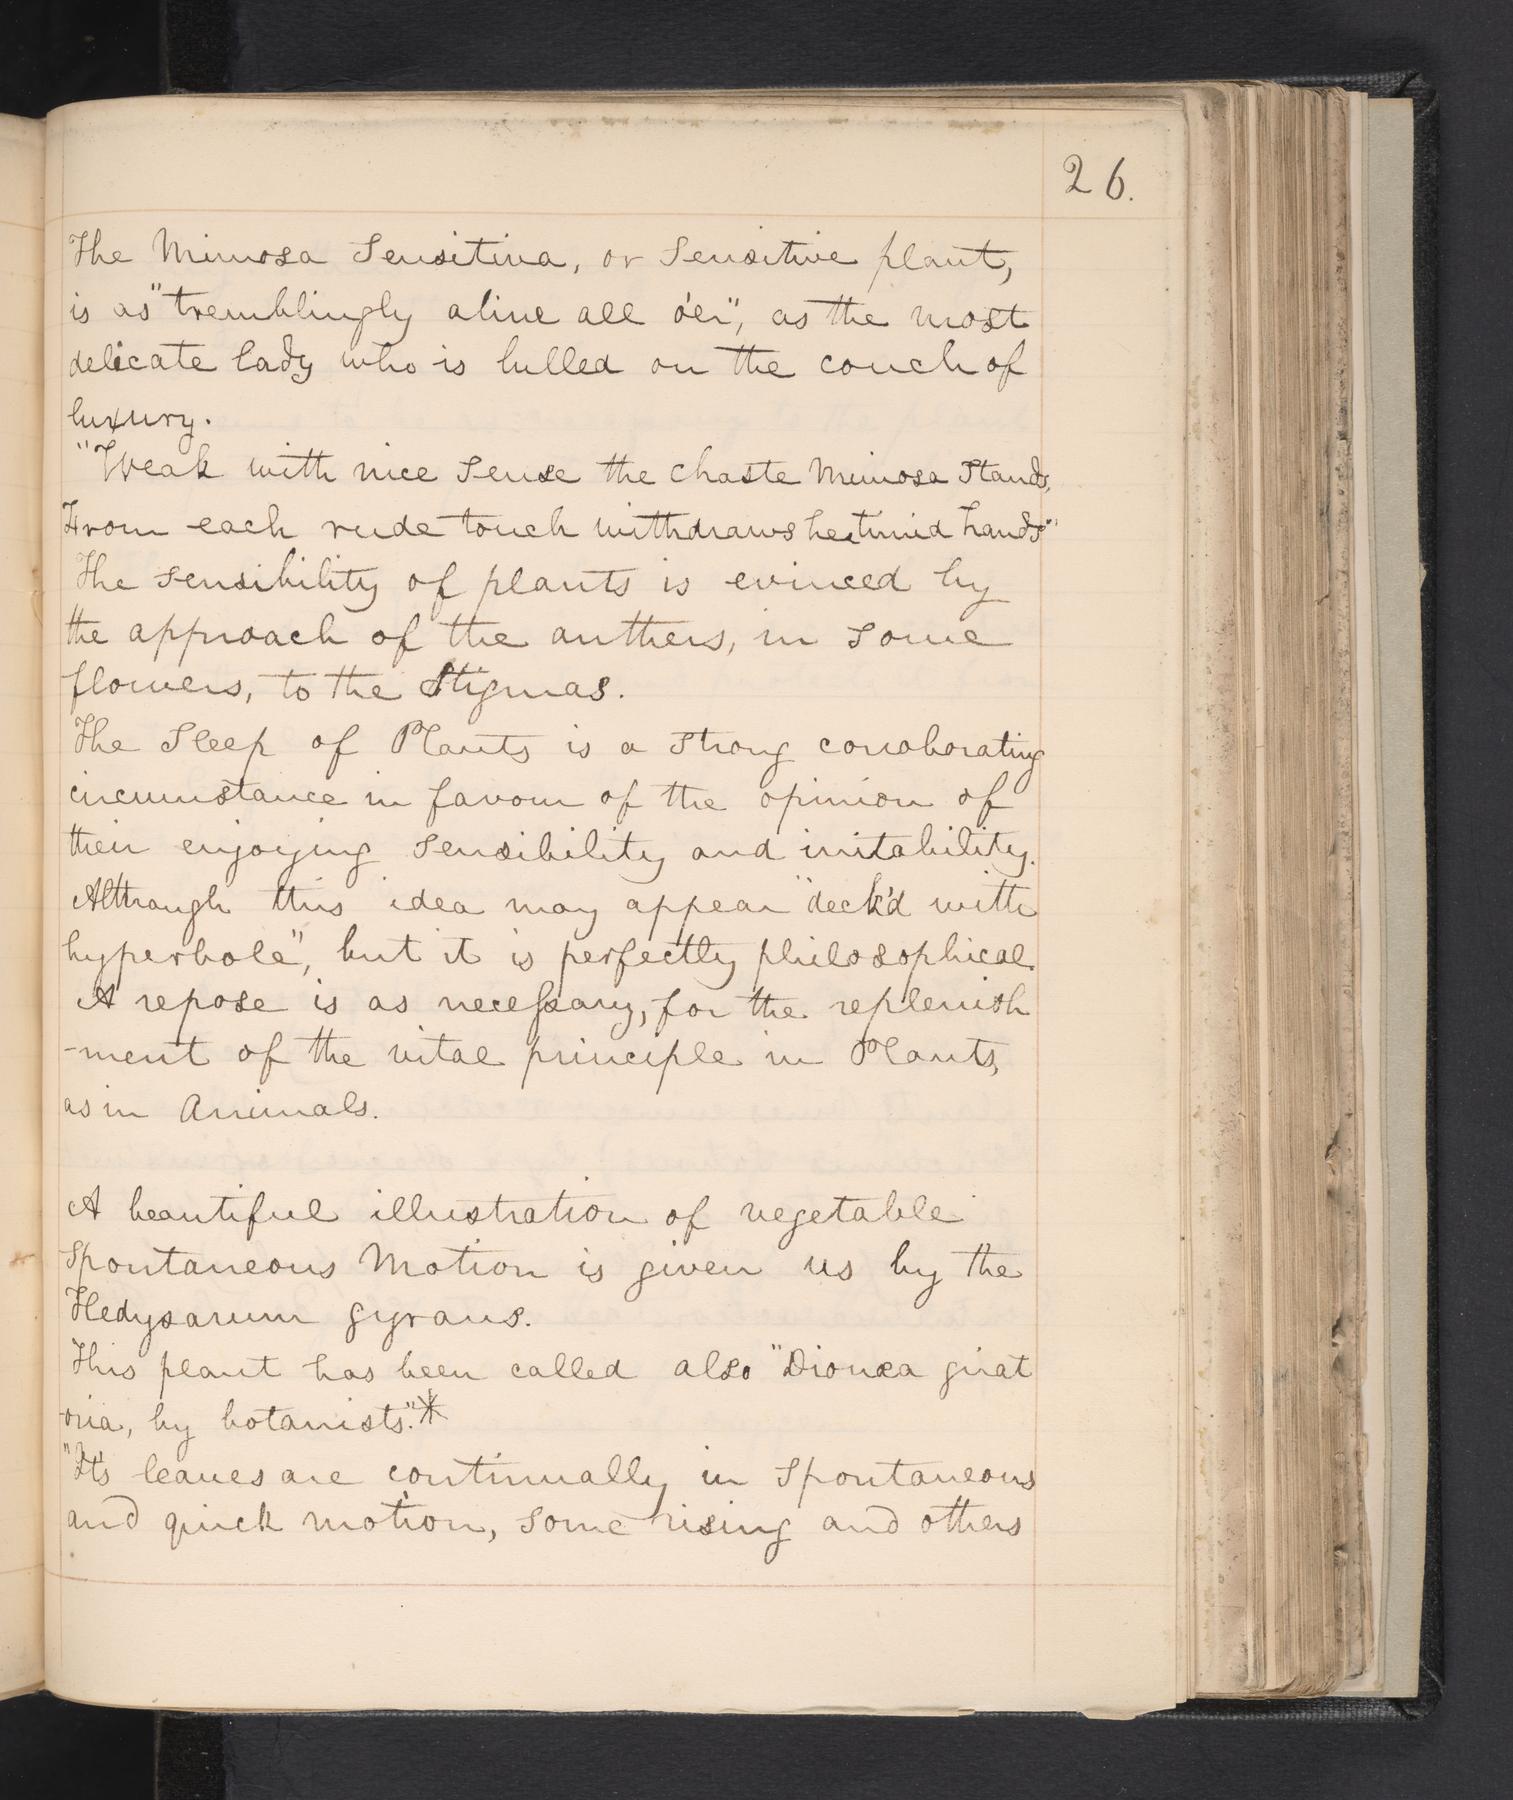 26.
The Mimosa Sensitiva, or Sensitive plant,
is as "tremblingly alive all o'er", as the most
delicate lady who is lulled on the couch of
luxury.
"Weak with nice sense the chaste Mimosa Stands,
From each rude touch withdraws her timid hands"
The sensibility of plants is evinced by
the approach of the anthers, in some
flowers, to the Stigmas.
The Sleep of Plants is a strong corroborating
circumstance in favour of the opinion of
their enjoying sensibility and irritability.
Although this idea may appear "deck'd with
hyperbole", but it is perfectly philosophical.
A repose is as necessary, for the replenish
-ment of the vital principle in Plants,
as in Animals.
A beautiful illustration of vegetable
Spontaneous Motion is given us by the
Hedysarum gyrans.
This plant has been called also "Dionæa girat
-oria, by botanists."*
"It's leaves are continually in spontaneous
and quick motion, some rising and others